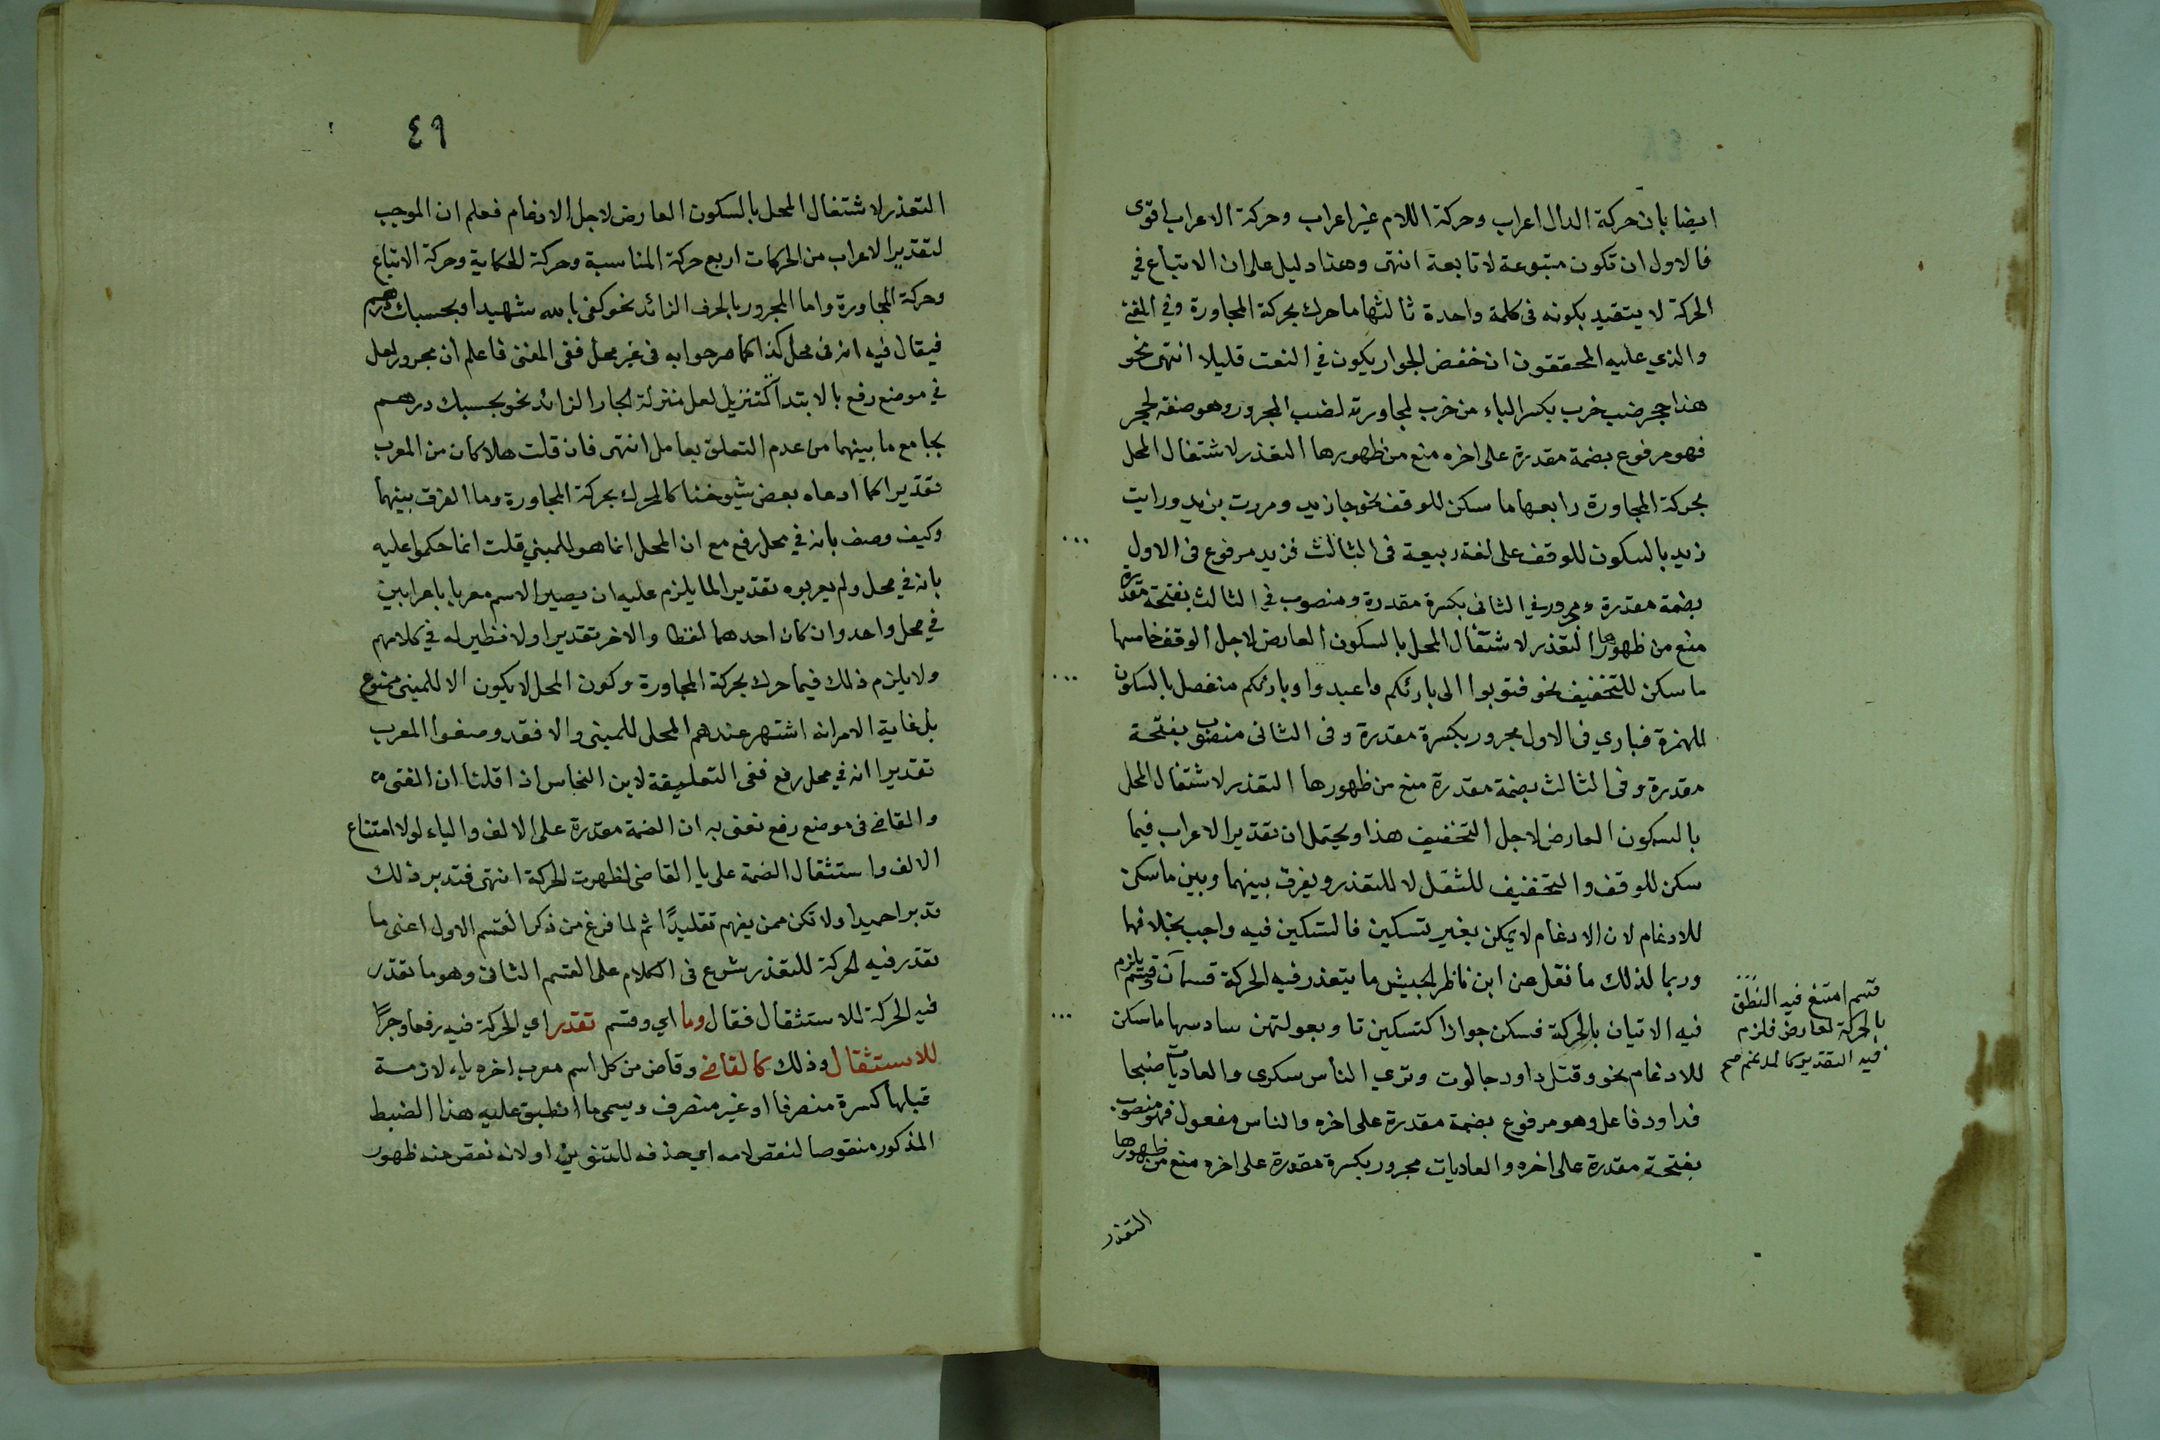 ايضا بان حركة الدال اعراب وحركة اللام غير اعراب وحركة الاعراب اقوى
فالاولى ان تكون متبوعة لا تابعة انتهى وهذا دليل على ان الاتباع في
الحركة لا يتقيد بكونه فى كلمة واحدة ثالثها ما حرك بحركة المجاورة وفي المغني
والذي عليه المحققون ان خفض الجوار يكون في النعت قليلا انتهى نحو
هذا حجر ضب خرب بكسر الباء من خرب لمجاورته لضب المجرور وهو صفة لحجر
فهو مرفوع بضمة مقدرة على اخره منع من ظهورها التعذر لاشتغال المحل
بحركة المجاورة رابعها ما سكن للوقف نحو جا زيد ومررت بزيد ورايت
زيد بالسكون للوقف على لغة ربيعة فى الثالث فزيد مرفوع فى الاول
بضمة مقدرة ومجرور في الثانى بكسرة مقدرة ومنصوب في الثالث بفتحة مقدرة
منع من ظهورها التعذر لاشتغال المحل بالسكون العارض لاجل الوقف خامسها
ما سكن للتخفيف نحو فتوبوا الى بارئكم واعبدوا بارئكم منفصل بالسكون
للهمزة فباري فى الاول مجرور بكسرة مقدرة وفى الثانى منصوب بفتحة
مقدرة وفى الثالث بضمة مقدرة منع من ظهورها التعذر لاشتغال المحل
بالسكون العارض لاجل التخفيف هذا ويحتمل ان تقدير الاعراب فيما
سكن للوقف والتخفيف للثقل لا للتعذر ويفرق بينهما وبين ما سكن
للادغام لان الادغام لا يمكن بغير تسكين فالتسكين فيه واجب بخلافهما
وربما لذلك ما نقل عن ابن ناظر الجيش ما يتعذر فيه الحركة قسمان قسم يلزم
فيه الاتيان بالحركة فسكن جوازا كتسكين تا وبعولتهن سادسها ما سكن
للادغام نحو وقتل داود جالوت وترى الناس سكرى والعاديات ضبحا
فداود فاعل وهو مرفوع بضمة مقدرة على اخره والناس مفعول فهو منصوب
بفتحة مقدرة على اخره والعاديات مجرور بكسرة مقدرة على اخره منع من ظهورها
التعذر
قسم امتنع فيه النطق
بالحركة لعارض فلزم
فيه التقدير كالمدغم صح
٤٩
التعذر لاشتغال المحل بالسكون العارض لاجل الادغام فعلم ان الموجب
لتقدير الاعراب من الحركات اربع حركة المناسبة وحركة الحكاية وحركة الاتباع
وحركة المجاورة واما المجرور بالحرف الزائد نحو كفى بالله شهيدا وبحسبك درهم
فيقال فيه انه فى محل كذا كما صرحوا به فى غير محل ففى المغنى فاعلم ان مجرور لعل
في موضع رفع بالابتدا لتنزيل لعل منزلة الجار الزائد نحو بحسبك درهم
بجامع ما بينهما من عدم التعلق بعامل انتهى فان قلت هلا كان من المعرب
تقديرا كما ادعاه بعض شيوخنا كالمحرك بحركة المجاورة وما الفرق بينهما
وكيف وصف بانه في محل رفع مع ان المحل انما هو للمبني قلت انما حكموا عليه
بانه في محل ولم يعربوه تقديرا لما يلزم عليه ان يصير الاسم معربا باعرابين
في محل واحد وان كان احدهما لفظا والاخر تقديرا ولا نظير له في كلامهم
ولا يلزم ذلك فيما حرك بحركة المجاورة وكون المحل لا يكون الا للمبنى ممنوع
بل غاية الامر انه اشتهر عندهم المحل للمبنى والا فقد وصفوا المعرب
تقديرا انه في محل رفع ففى التعليقة لابن النحاس اذا قلنا ان الفتى
والقاضي فى موضع رفع نعنى به ان الضمة مقدرة على الالف والياء لولا امتناع
الالف واستثقال الضمة على يا القاضى لظهرت الحركة انتهى فتدبر ذلك
تدبرا حميدا ولا تكن ممن يفهم تقليدًا ثم لما فرغ من ذكر القسم الاول اعنى ما
تقدر فيه الحركة للتعذر شرع فى الكلام على القسم الثانى وهو ما تقدر
فيه الحركة للاستثقال فقال وما اي وقسم تقدر اي الحركة فيه رفعا وجرًا
للاستثقال وذلك كالقاضي وقاض من كل اسم معرب اخره ياء لازمة
قبلها كسرة منصرفا او غير منصرف ويسمى ما انطبق عليه هذا الضبط
المذكور منقوصا لنقص لامه اي حذفه للتنوين او لانه نقص منه ظهور